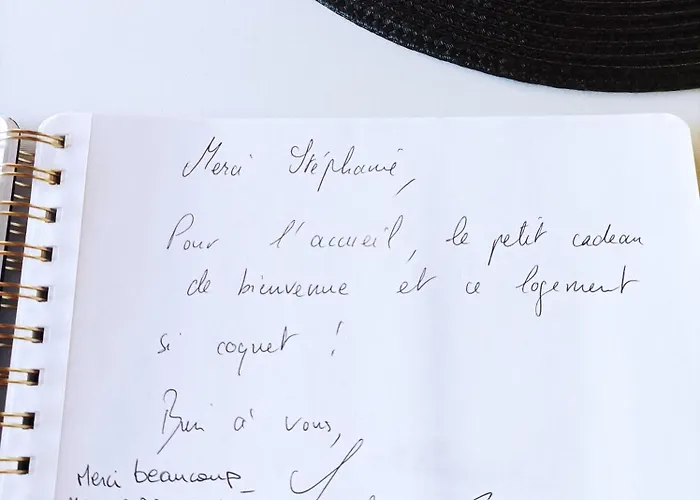 Merci Stéphanie,
Pour l'accueil, le petit cadeau
de bienvenue et ce logement
si coquet !
Bien à vous,
Merci beaucoup